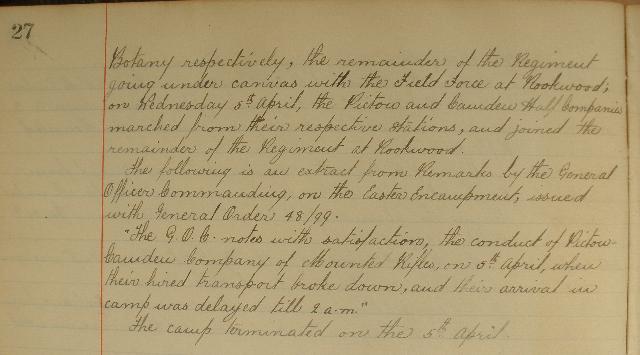 27
Botany respectively, the remainder of the Regiment
going under canvas with the Field Force at Rookwood;
on Wednesday 5th April, the Picton and Camden Half Companies
marched from their respective stations, and joined the
remainder of the Regiment at Rookwood.
The following is an extract from Remarks by the General
Officer Commanding, on the Easter Encampment, issued
with General Order 48/99.
"The G.O.C. notes with satisfaction, the conduct of Picton-
Camden Company of Mounted Rifles, on 5th April, when
their hired transport broke down, and their arrival in
camp was delayed till 2 a.m."
The camp terminated on the 5th April.